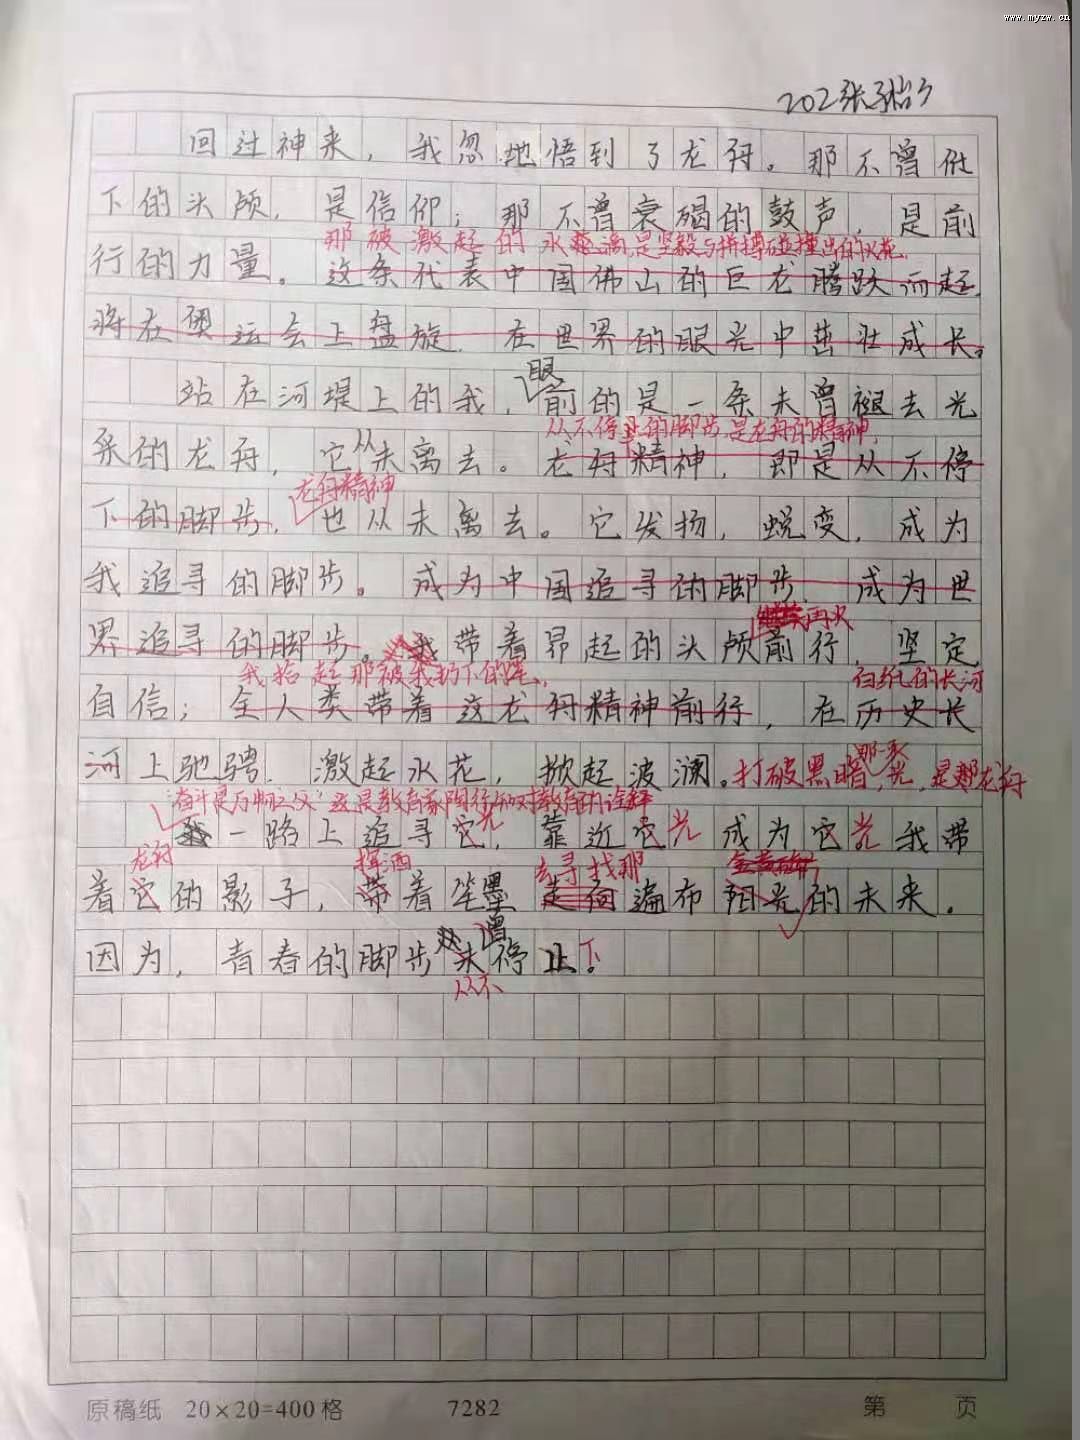 www.myzw.cn
202张
回过神来，我忽地悟到了龙舟。那不曾低
下的头颅，是信仰；那不曾衰竭的鼓声，是前
那被激起的水花滴，是坚毅与拼搏碰撞出的火花。
行的力量。这条代表中国佛山的巨龙腾跃而起，
将在奥运会上盘旋，在世界的眼光中茁壮成长。
眼
站在河堤上的我，前的是一条未曾褪去光
从不停止的脚步，是龙舟的精神，
彩的龙舟，它从未离去。龙舟精神，即是从不停
龙舟精神
下的脚步，也从未离去。它发扬，蜕变，成为
我追寻的脚步。成为中国追寻的脚步，成为世
再次
界追寻的脚步。我带着昂起的头颅前行，坚定，
我拾起那被我扔下的笔，
白纸的长河
自信；全人类带着这龙舟精神前行，在历史长
那束
河上驰骋，激起水花，掀起波澜。打破黑暗，光，是那龙舟
"奋斗是万物之父"这是教育家陶行知对教育的诠释
我一路上追寻它光，靠近它光，成为它光，我带
龙舟 挥洒 去寻找那
着它的影子，带着笔墨走向遍布阳光的未来。
曾
因为，青春的脚步未停止下。
从不
原稿纸 20×20=400格 7282 第 页